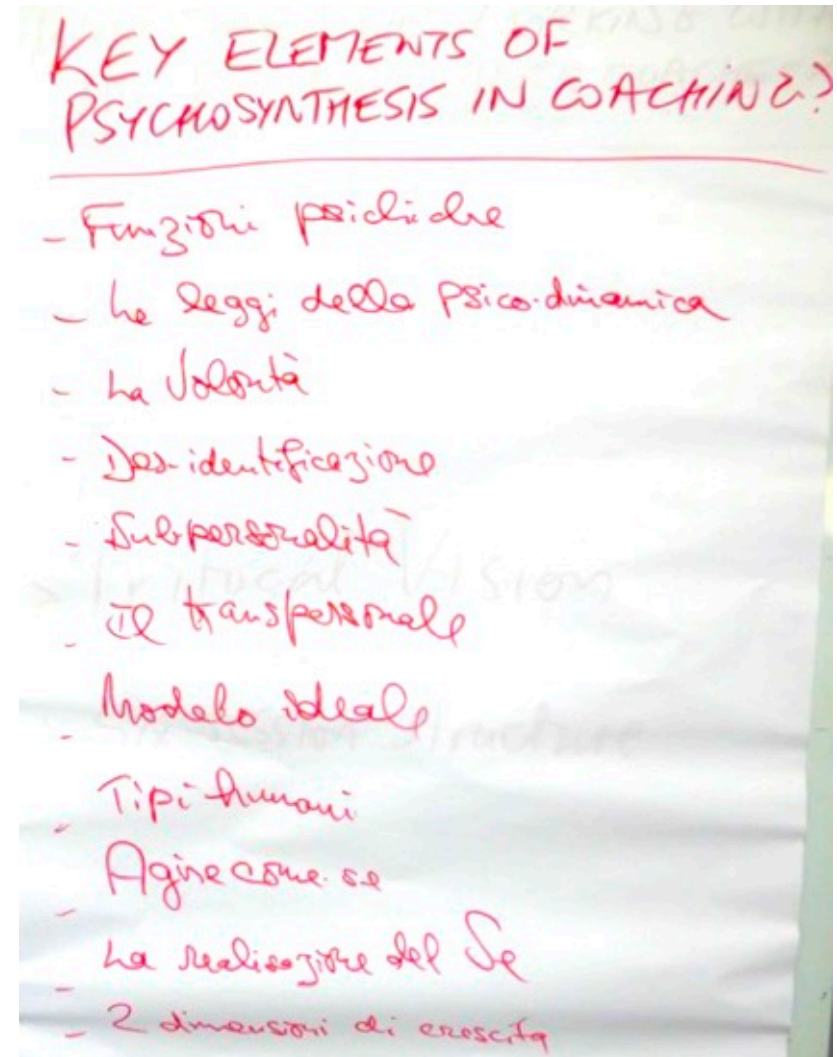 KEY ELEMENTS OF
PSYCHOSYNTHESIS IN COACHING?
- Funzioni psichiche
- Le leggi della psico-dinamica
- La Volontà
- Des-identificazione
- Subpersonalità
- Il transpersonale
- Modelo ideale
- Tipi humani
- Agire come se
- La realisazione del Se
- 2 dimensioni di crescita
Trifocal Vision
session structure